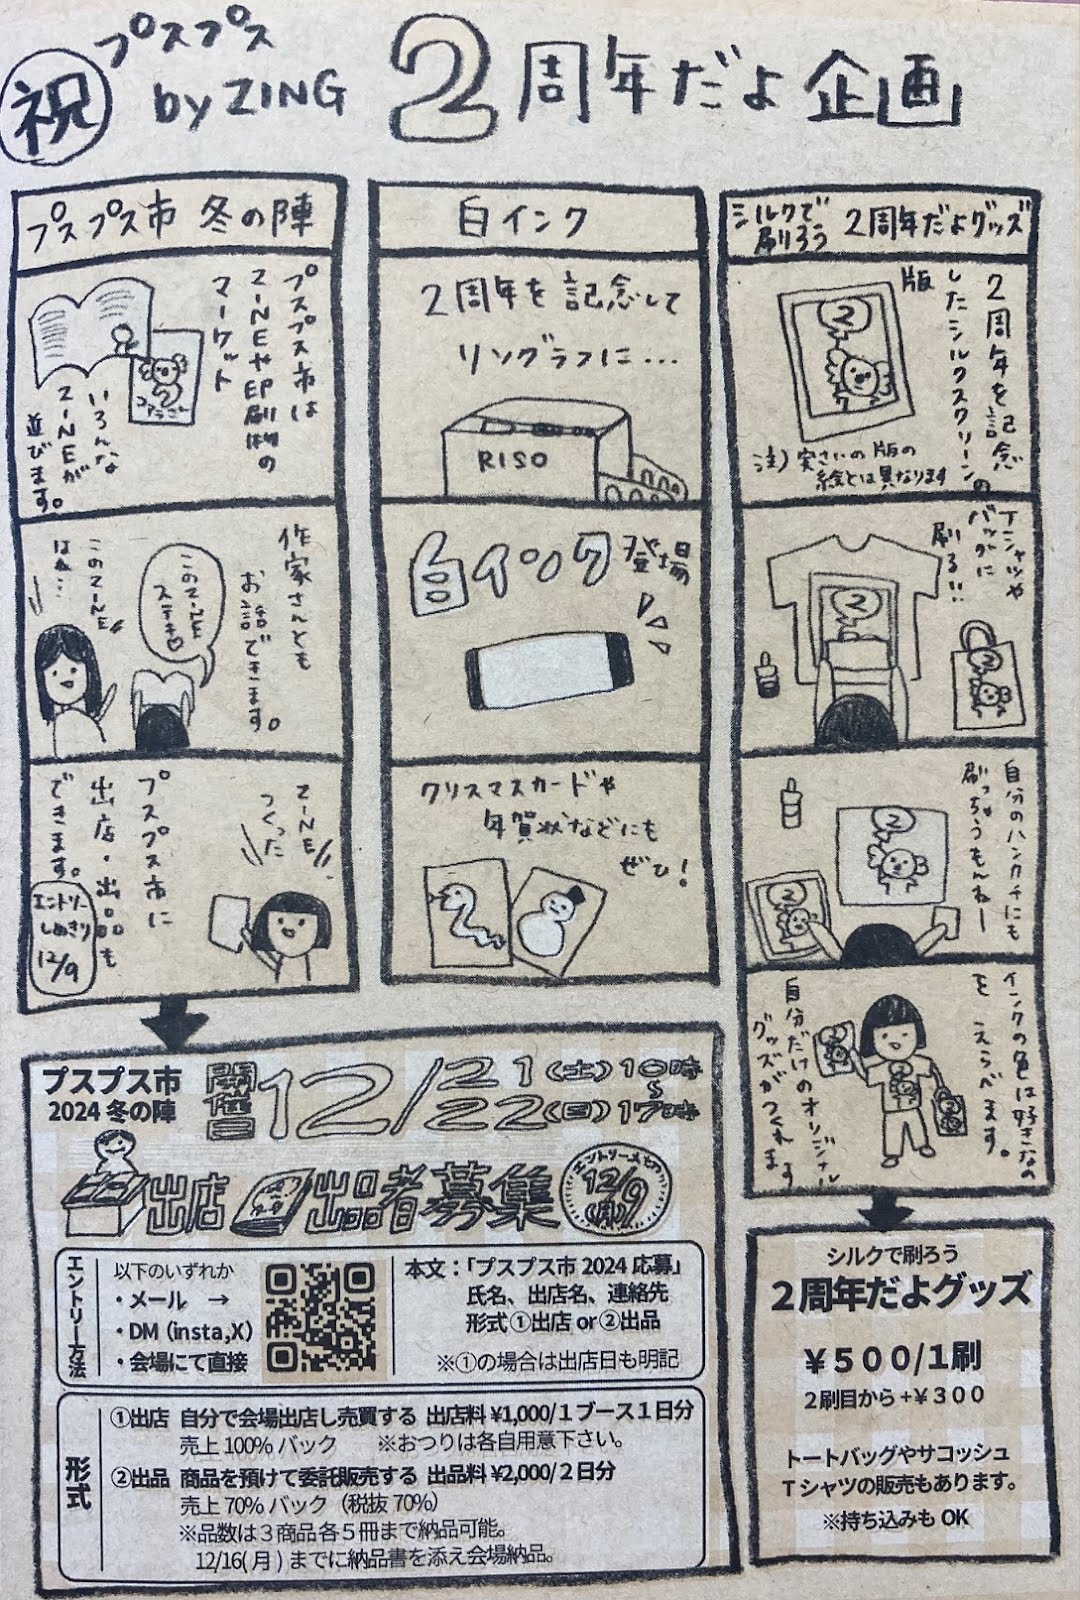 祝
プスプス
by ZING
2周年だよ企画
プスプス市 冬の陣
プスプス市は
ZINEや印刷物の
マーケット
いろんな
ZINEが
並びます。
作家さんとも
お話できます。
このZINE
ステキ
このZINE
はね…
ZINE
つくった
プスプス市に
出店・出品も
できます。
エントリー
しめきり
12/9
白インク
2周年を記念して
リソグラフに…
RISO
白インク登場
クリスマスカードや
年賀状などにも
ぜひ!
シルクで
刷ろう
2周年だよグッズ
2周年を記念
したシルクスクリーンの
版
2
注)実さいの版の
絵とは異なります
Tシャツや
バッグに
刷る!!
2
2
自分のハンカチにも
刷っちゃうもんねー
2
2
インクの色は好きなの
を えらべます。
自分だけのオリジナル
グッズがつくれます
プスプス市
2024 冬の陣
開催日
12/21(土)10時
22(日)17時
出店 出品者募集
エントリー〆切
12/9
(月)
エントリー方法
以下のいずれか
・メール →
・DM(insta,X)
・会場にて直接
本文:「プスプス市2024応募」
氏名、出店名、連絡先
形式①出店or②出品
※①の場合は出店日も明記
形式
①出店 自分で会場出店し売買する 出店料¥1,000/1ブース1日分
売上100%バック ※おつりは各自用意下さい。
②出品 商品を預けて委託販売する 出品料¥2,000/2日分
売上70%バック(税抜70%)
※品数は3商品各5冊まで納品可能。
12/16(月)までに納品書を添え会場納品。
シルクで刷ろう
2周年だよグッズ
¥500/1刷
2刷目から+¥300
トートバッグやサコッシュ
Tシャツの販売もあります。
※持ち込みもOK